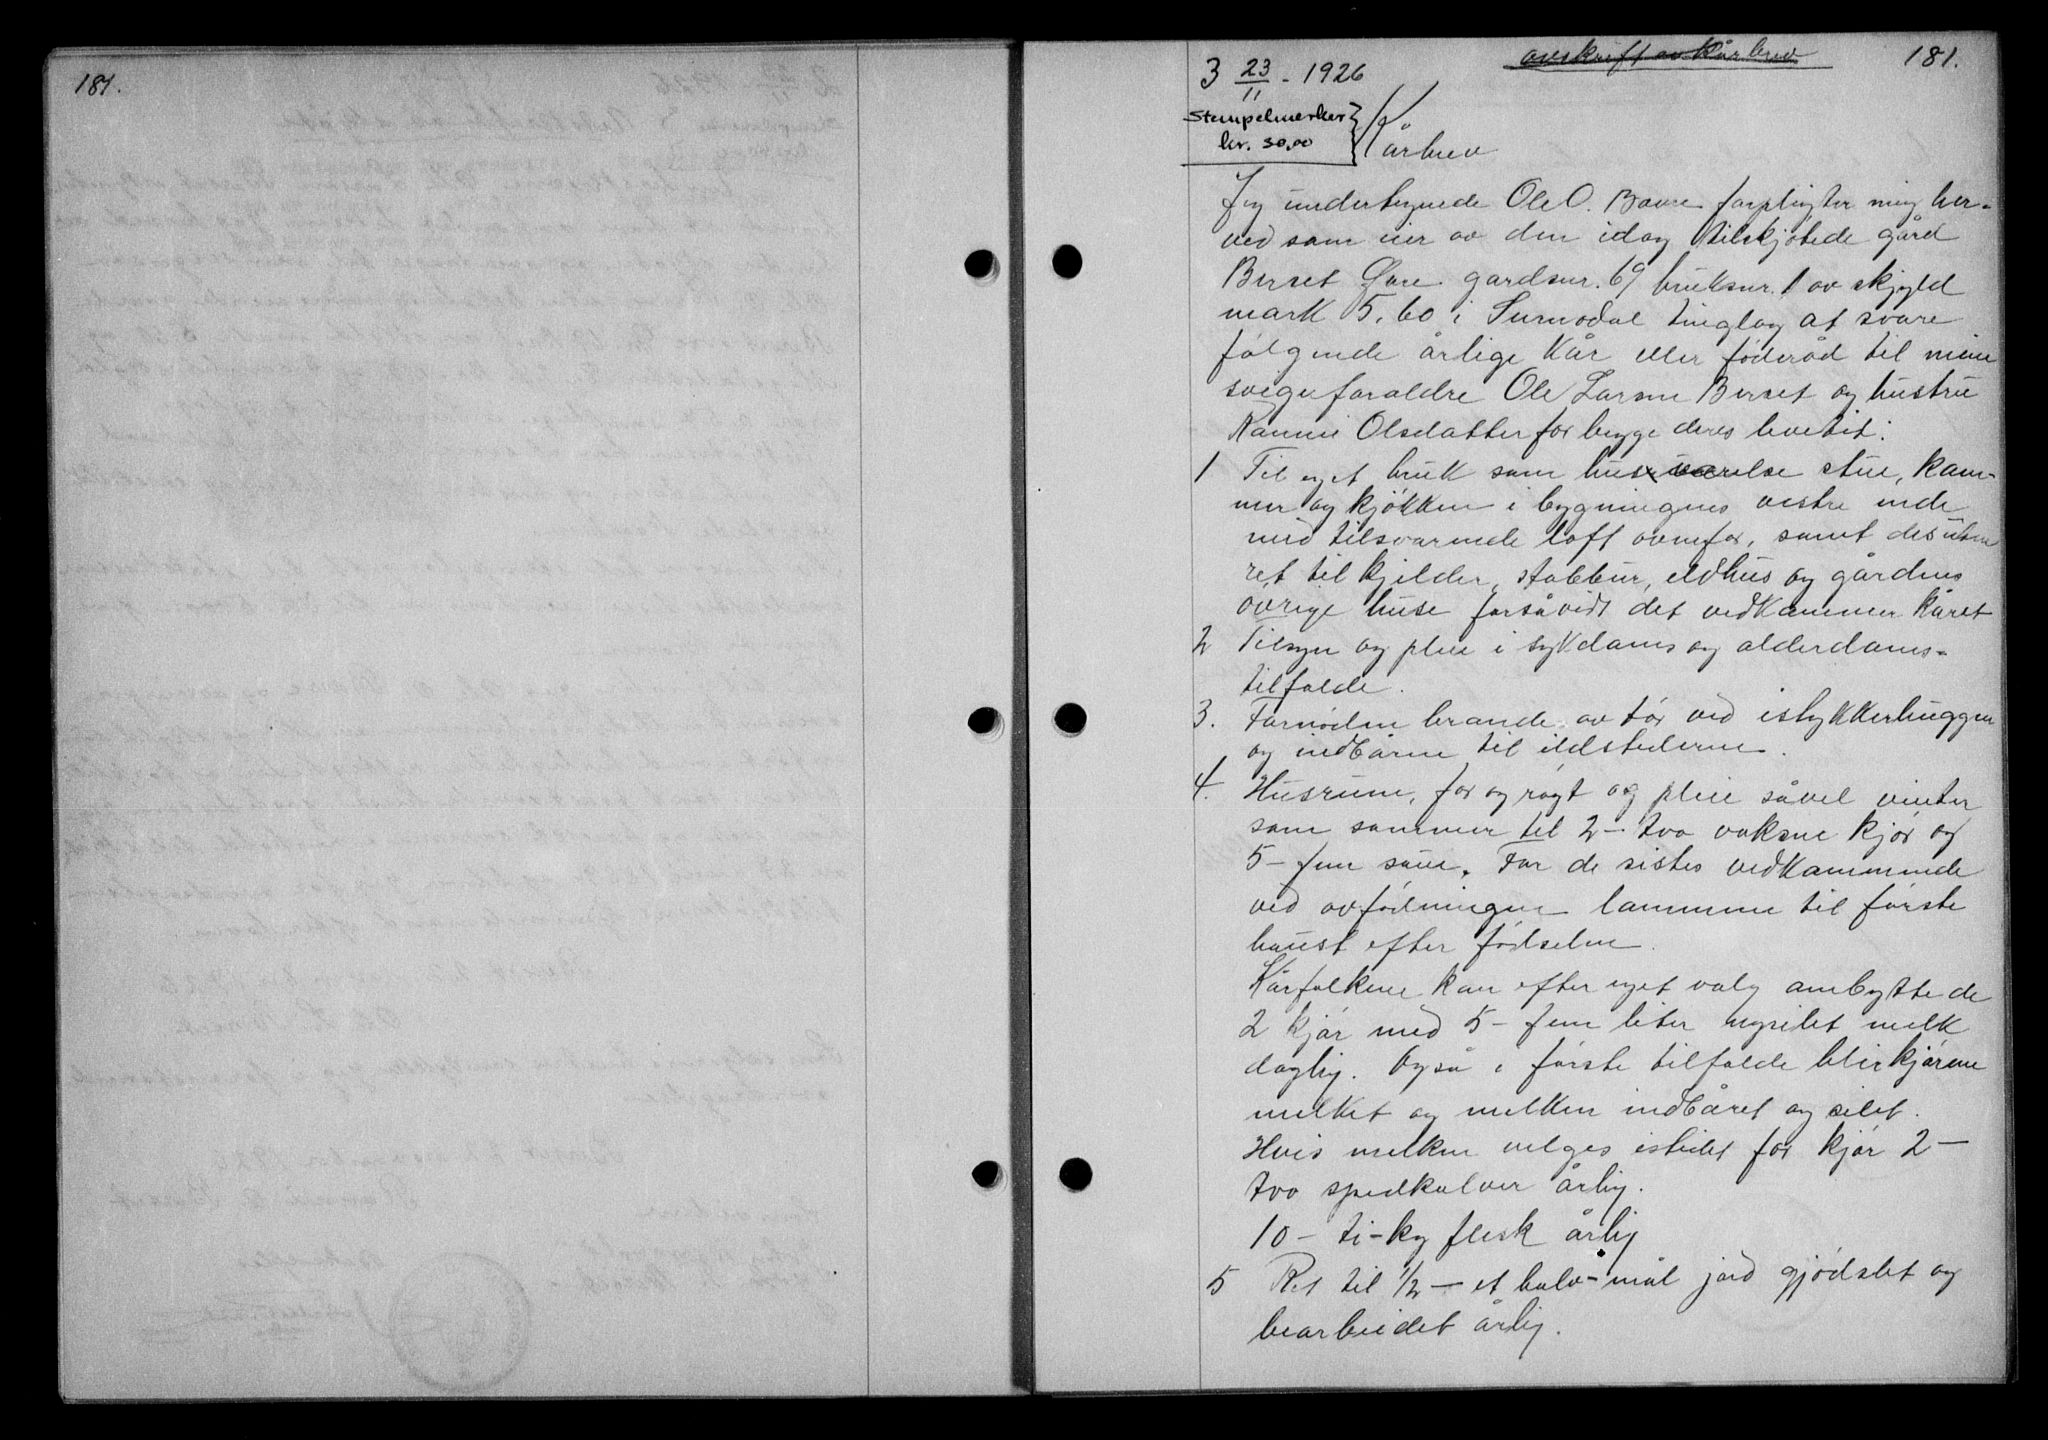 181.
avskrift av Kårbrev
181.
3 23/11 - 1926
Stempelmerker
kr. 30,00
Kårbrev
Jeg undertegnede Ole O. Bævre forpligter mig her-
ved som eier av den idag tilskjøtede gård
Berset Øvre gardsnr. 69 bruksnr. 1 av skyld
mark 5,60 i Surnadal tinglag at svare
følgende årlige kår eller føderåd til mine
svigeforældre Ole Larsen Berset og hustru
Olsdatter for begge deres levetid:
1 Til eget bruk som husværelse stue, kam-
mer og kjøkken i bygningens vestre ende
med tilsvarende loft ovenfor, samt desuten
ret til kjelder, stabbur, eldhus og gårdens
øvrige huse forsåvidt det vedkommer kåret
2 Tilsyn og pleie i sykdoms og alderdoms-
tilfælde.
3. Fornøden brænde av tør ved istykkerhuggen
og indbåren til ildstederne.
4. Husrum, for og røgt og pleie såvel vinter
som sommer til 2 - tvo voksne kjør og
5 - fem sauer. For de sistes vedkommende
ved avfødningen lammene til første
høust efter fødselen.
Kårfolkene kan efter eget valg ombytte de
2 kjør med 5 - fem liter nysilet melk
daglig. Også i første tilfælde blir kjørene
melket og melken indbåret og silet.
Hvis melken velges istedet for kjør 2 -
tvo spedkalver årlig.
10 - ti - kg flesk årlig
5 Ret til 1/2 - et halv - mål jord gjødslet og
bearbeidet årlig.